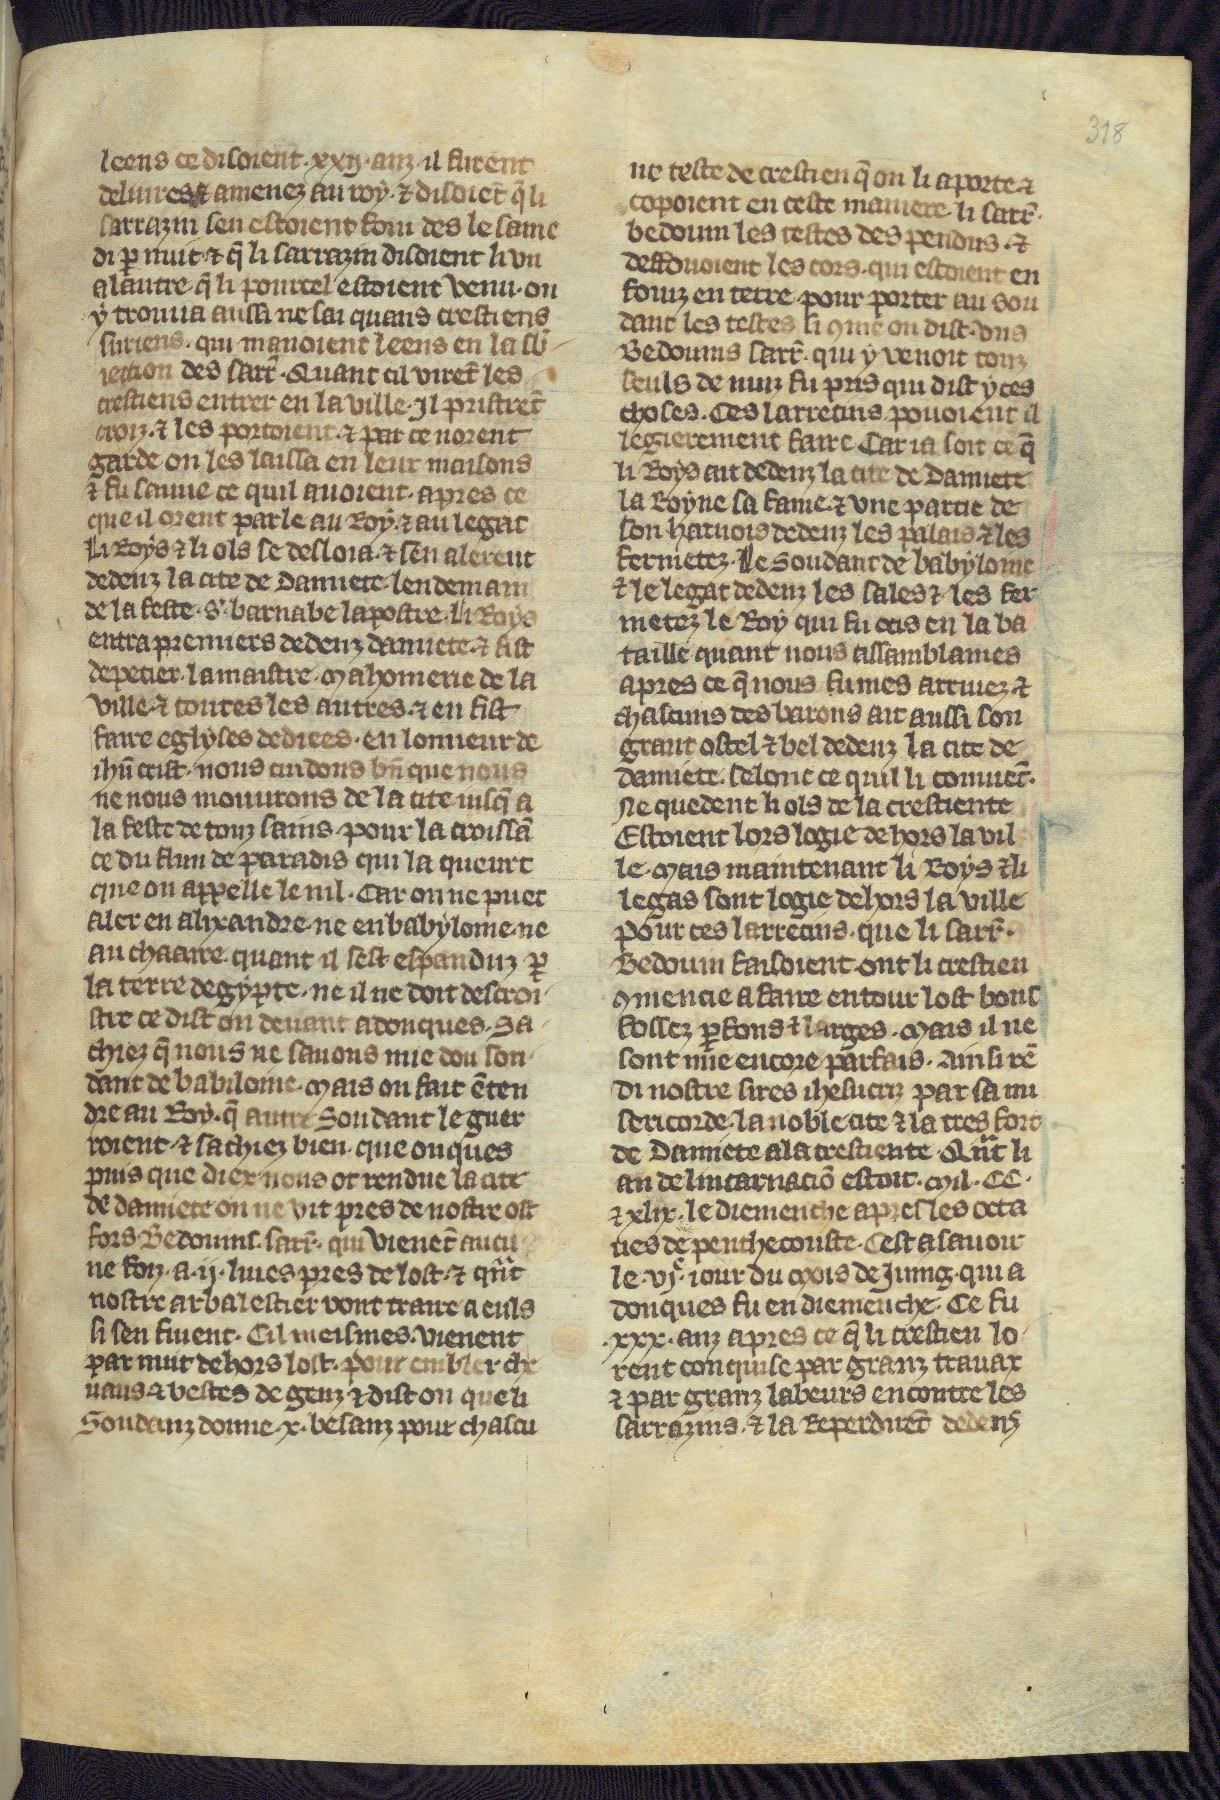 318
leens ce disoient .xxij. anz. il furent
deliures ⁊ amenez au roy. ⁊ disoiẽt q̃ li
sarrazin sen estoient foui des le same
di ꝑ nuit. ⁊ q̃ li sarrazin disoient li vn
a lautre. q̃ li pourcel estoient venu. on
y trouua aussi ne sai quans crestiens
suriens. qui manoient leens en la sb̃
iection des sarr̃. Quant cil virẽt les
crestiens entrer en la ville. Il pristrẽt
croiz. ⁊ les portoient. ⁊ par ce norent
garde on les laissa en leur maisons
⁊ fu sauue ce quil auoient. apres ce
que il orent parle au Roy. ⁊ au legat
Li Roys ⁊ li ols se desloia. ⁊ sen alerent
dedenz la cite de Damiete. lendemain
de la feste .S. barnabe lapostre. Li Roys
entra premiers dedenz damiete. ⁊ fist
depecier. la maistre. Mahomerie de la
ville. ⁊ toutes les autres. ⁊ en fist
faire eglyses dediees. en lonneur de
ihũ crist. nous cuidons bñ que nous
ne nous mouurons de la cite iusq̃ a
la feste de touz sains. pour la croissã
ce du flun de paradis qui la queurt
que on appelle le nil. Car on ne puet
aler en alixandre. ne en babylonie. ne
au chaaire. quant il sest espanduz ꝑ
la terre degypte. ne il ne doit descroi
stre ce dist on deuant adonques. Sa
chiez q̃ nous ne sauons mie dou sou
dant de babilonie. Mais on fait ẽten
dre au Roy. q̃ autre Soudant le guer
roient. ⁊ sachiez bien. que onques
puis que diex nous ot rendue la cite
de damiete on ne vit pres de nostre ost
fors Bedouins. sarr̃. qui vienẽt aucu
ne foiz .a .ij. liues pres de lost. ⁊ qñt
nostre arbalestier vont traire a euls
si sen fuient. Cil meismes. vienent
par nuit dehors lost. pour embler che
uaus. ⁊ testes de genz. ⁊ dist on que li
Soudanz donne .x. besanz pour chascu
ne teste de crestien q̃ on li aporte. ⁊
copoient en ceste maniere. li sarr̃.
bedouin les testes des pendus. ⁊
deffouoient les cors. qui estoient en
fouiz en terre. pour porter au sou
dant les testes si ꝯme on dist. Vns
Bedouins sarr̃. qui y venoit touz
seuls de nuiz fu pris qui dist y ces
choses. Ces larrecins. pouoient il
legierement faire. Car ia soit ce q̃
li Roys ait dedenz la cite de Damiete
la Royne sa fame. ⁊ vne partie de
son harnois dedenz les palais. ⁊ les
fermetez. Le Soudant de babylonie
⁊ le legat dedenz les sales ⁊ les fer
metez le Roy qui fu ocis en la ba
taille quant nous assamblames
apres ce q̃ nous fumes arriuez. ⁊
chascuns des barons ait aussi son
grant ostel ⁊ bel dedenz la cite de
damiete. selonc ce quil li conuiẽt.
Ne quedent li ols de la crestiente
Estoient lors logie dehors la vil
le. Mais maintenant li Roys ⁊ li
legas sont logie dehors la ville
pour ces larrecins. que li sarr̃.
Bedouin faisoient. ont li crestien
ꝯmencie a faire entour lost bons
fossez ꝑfons ⁊ larges. Mais il ne
sont mie encore parfais. Ainsi rẽ
di nostre sires ihesucriz par sa mi
sericorde. la noble cite ⁊ la tres fort
de Damiete a la crestiente. Qñt li
an de lincarnaciõ estoit. Mil. CC.
⁊ xlix. le diemenche apres les octa
ues de penthecouste. Cest asauoir
le .vjͤ. iour du mois de Juing. qui a
donques fu en diemenche. Ce fu
.xxx. anz apres ce q̃ li crestien lo
rent conquise par granz trauax
⁊ par granz labeurs encontre les
sarrazins. ⁊ la Reperdirẽt dedenz